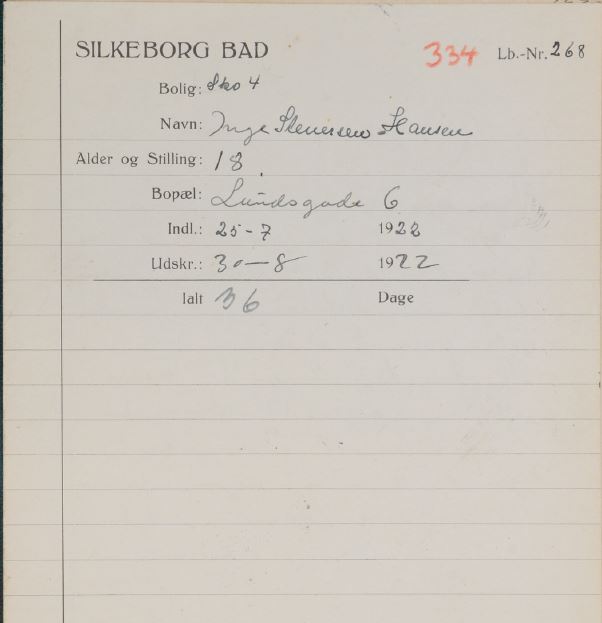 SILKEBORG BAD 334 Lb.-Nr. 268
Bolig: Sko 4
Navn: Inge Stenersen Hansen
Alder og Stilling: 18
Bopæl: Lundsgade 6
Indl.: 25-7 1922
Udskr.: 30-8 1922
Ialt 36 Dage